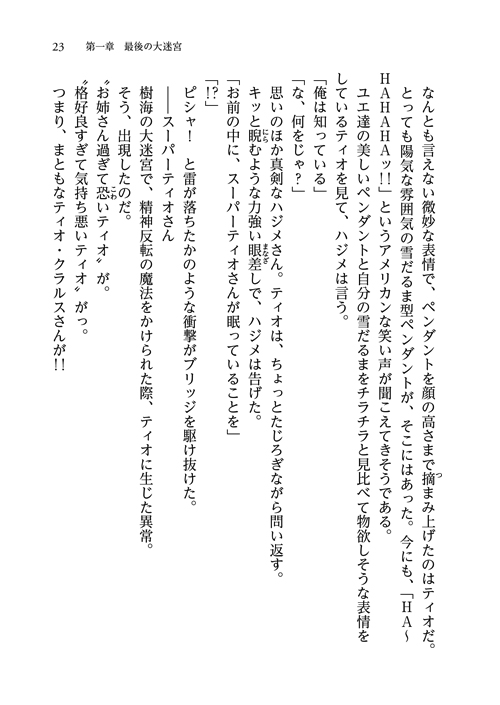 23　第一章　最後の大迷宮
なんとも言えない微妙な表情で、ペンダントを顔の高さまで摘まみ上げたのはティオだ。
とっても陽気な雰囲気の雪だるま型ペンダントが、そこにはあった。今にも、「ＨＡ〜
ＨＡＨＡＨＡッ!!」というアメリカンな笑い声が聞こえてきそうである。
ユエ達の美しいペンダントと自分の雪だるまをチラチラと見比べて物欲しそうな表情を
しているティオを見て、ハジメは言う。
「俺は知っている」
「な、何をじゃ？」
思いのほか真剣なハジメさん。ティオは、ちょっとたじろぎながら問い返す。
キッと睨むような力強い眼差しで、ハジメは告げた。
「お前の中に、スーパーティオさんが眠っていることを」
「!?」
ピシャ！　と雷が落ちたかのような衝撃がブリッジを駆け抜けた。
――スーパーティオさん
樹海の大迷宮で、精神反転の魔法をかけられた際、ティオに生じた異常。
そう、出現したのだ。
〝お姉さん過ぎて恐いティオ〟が。
〝格好良すぎて気持ち悪いティオ〟がっ。
つまり、まともなティオ・クラルスさんが!!